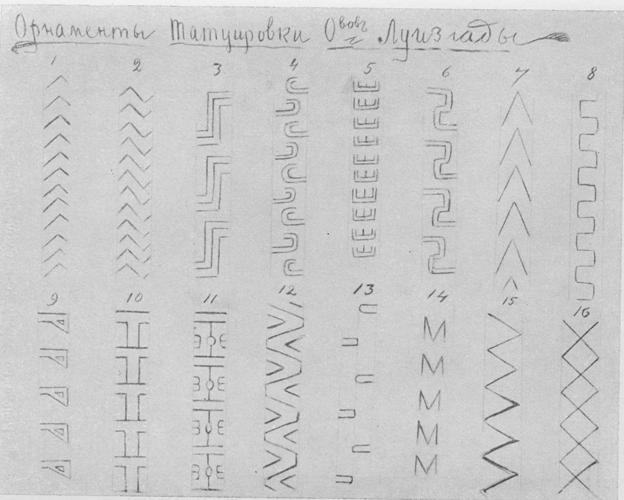 Орнаменты Татуировки Ововъ Луизiады
1 2 3 4 5 6 7 8
9 10 11 12 13 14 15 16